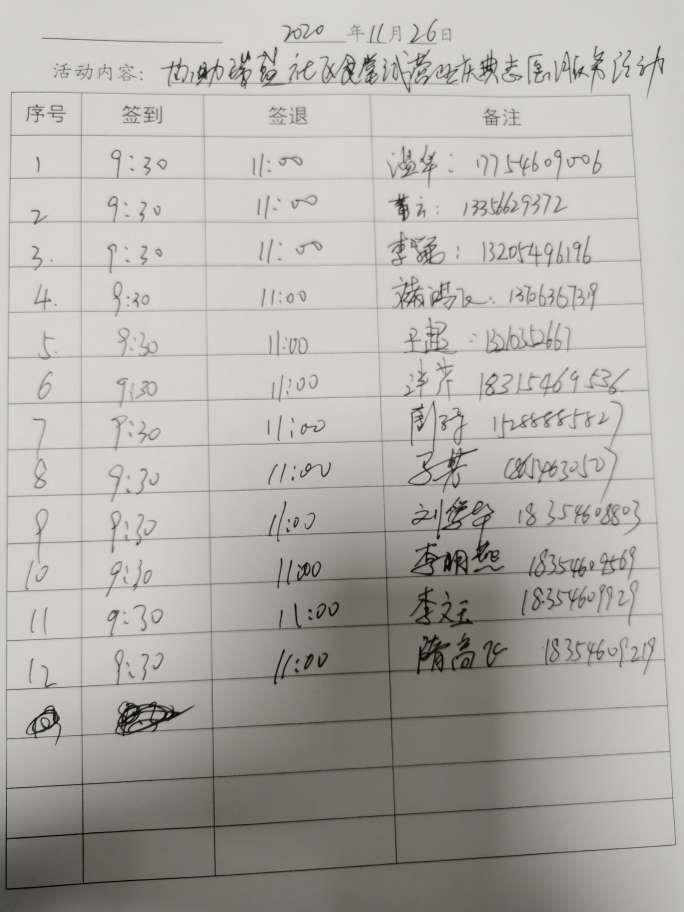 2020 年 11 月 26 日
活动内容: 协助 社区食堂试营业庆典志愿服务活动
序号 签到 签退 备注
1 9:30 11:00 温华: 17754609006
2 9:30 11:00 董云: 13356629372
3. 9:30 11:00 李 : 13205496196
4. 9:30 11:00
5. 9:30 11:00 王超:
6 9:30 11:00 18315469536
7 9:30 11:00 15288885827
8 9:30 11:00
9 9:30 11:00 刘 华 18354608803
10 9:30 11:00 李明 18354609569
11 9:30 11:00 李文玉 18354609929
12 9:30 11:00 隋高飞 18354609219